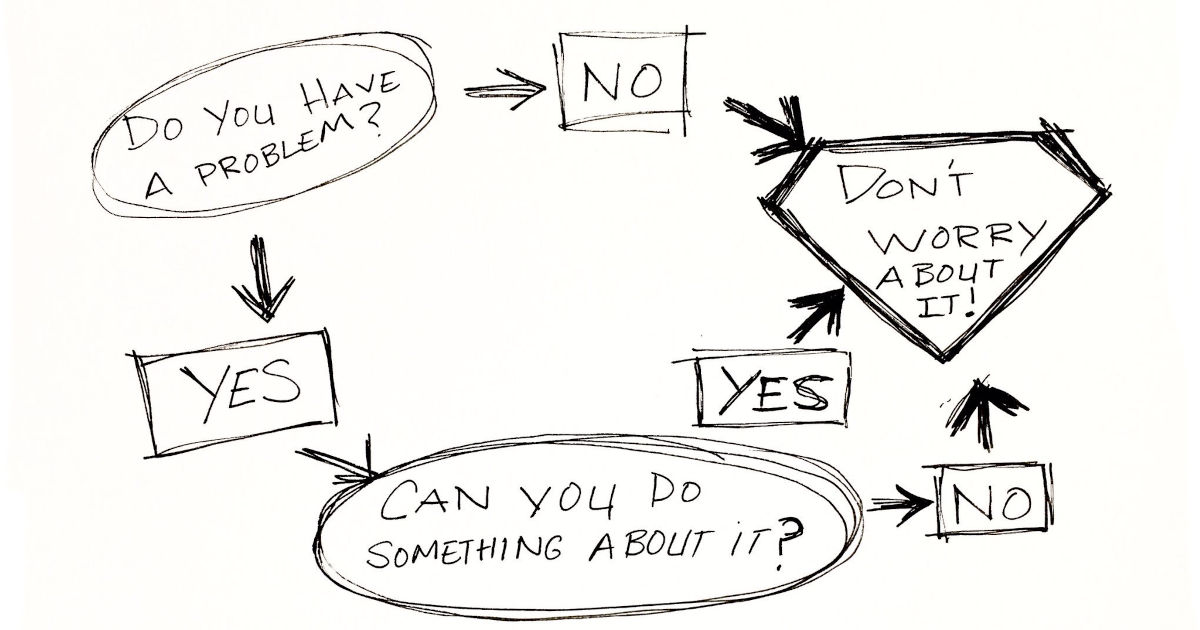 DO YOU HAVE
A PROBLEM?
NO
DON'T
WORRY
ABOUT
IT!
YES
YES
CAN YOU DO
SOMETHING ABOUT iT?
NO